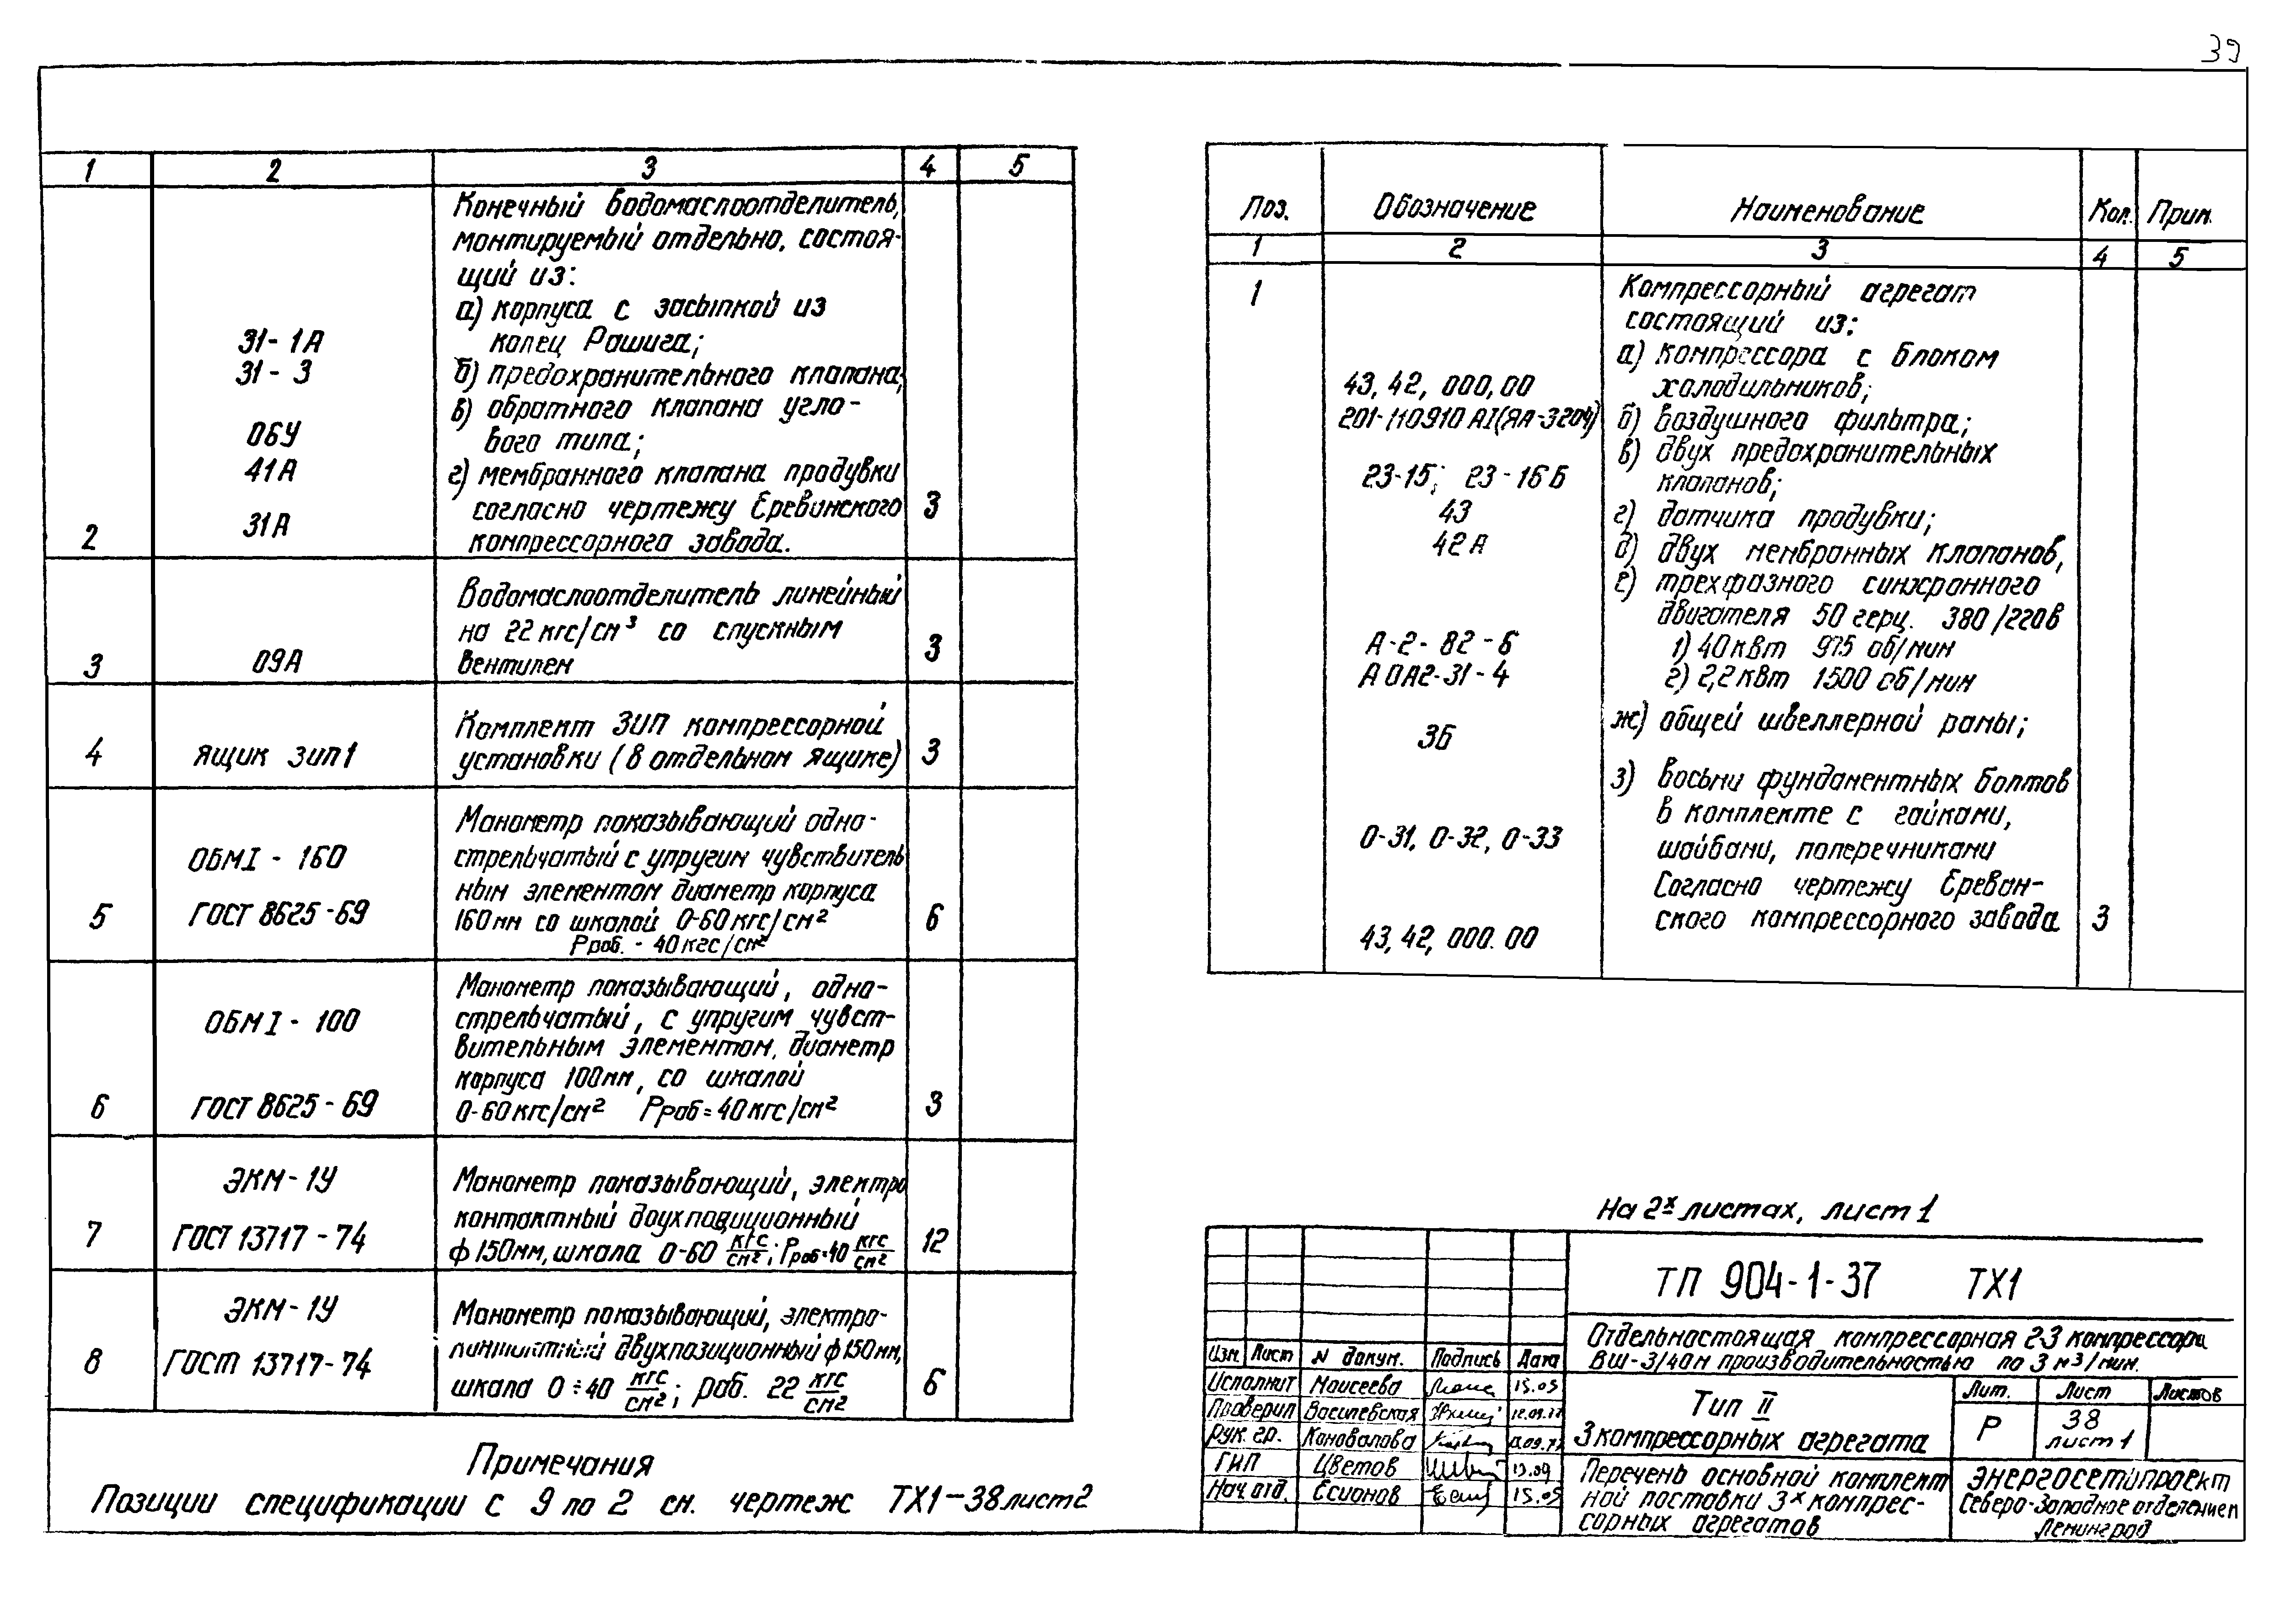 39
1 2 3 4 5
Конечный водомаслоотделитель,
монтируемый отдельно, состоя-
щий из:
а) корпуса с засыпкой из
31-1А колец Рашига;
31-3 б) предохранительного клапана;
в) обратного клапана угло-
ОБУ вого типа;
41А г) мембранного клапана продувки
согласно чертежу Ереванского 3
2 31А компрессорного завода.
Водомаслоотделитель линейный
на 22 кгс/см³ со спускным 3
3 09А вентилем
Комплект ЗИП компрессорной
4 ящик зип1 установки (в отдельном ящике) 3
Манометр показывающий одно-
ОБМI - 160 стрельчатый с упругим чувствитель
ным элементом диаметр корпуса
5 ГОСТ 8625-69 160мм со шкалой 0-60 кгс/см² 6
Рраб. - 40 кгс/см²
Манометр показывающий, одно-
ОБМI - 100 стрельчатый, с упругим чувст-
вительным элементом, диаметр
корпуса 100мм, со шкалой
6 ГОСТ 8625-69 0-60 кгс/см² Рраб=40 кгс/см² 3
ЭКМ-1У Манометр показывающий, электро
контактный двухпозиционный
7 ГОСТ 13717-74 ф150мм, шкала 0-60 кгс/см²; Рраб=40 кгс/см² 12
ЭКМ-1У Манометр показывающий, электро-
8 ГОСТ 13717-74 двухпозиционный ф150мм,
шкала 0÷40 кгс/см²; раб. 22 кгс/см² 6
Примечания
Позиции спецификации с 9 по 2 см. чертеж ТХ1-38лист2
Поз. Обозначение Наименование Кол. Прим.
1 2 3 4 5
1 Компрессорный агрегат
состоящий из:
а) компрессора с блоком
43, 42, 000,00 холодильников;
201-110910 АI(ЯА-3204) б) воздушного фильтра;
в) двух предохранительных
23-15; 23-16Б клапанов;
43 г) датчика продувки;
42А д) двух мембранных клапанов,
е) трехфазного синхронного
двигателя 50 герц. 380/220в
А-2-82-6 1) 40 квт 975 об/мин
АОА2-31-4 2) 2,2 квт 1500 об/мин
3Б ж) общей швеллерной рамы;
з) восьми фундаментных болтов
в комплекте с гайками,
0-31, 0-32, 0-33 шайбами, поперечниками
Согласно чертежу Ереван-
ского компрессорного завода 3
43, 42, 000.00
На 2х листах, лист 1
ТП 904-1-37 ТХ1
Отдельностоящая компрессорная 2-3 компрессора
ВШ-3/40м производительностью по 3 м³/мин.
Изм Лист N докум. Подпись Дата
Исполнит Моисеева 15.09
Проверил Василевская 12.09.77
Рук. гр. Коновалова
ГИП Цветов 13.09
Нач. отд. Есионов 15.09
Тип II
3 компрессорных агрегата
Лит. Лист Листов
Р 38
лист 1
Перечень основной комплект
ной поставки 3х компрес-
сорных агрегатов
Энергосетьпроект
Северо-Западное отделение
Ленинград